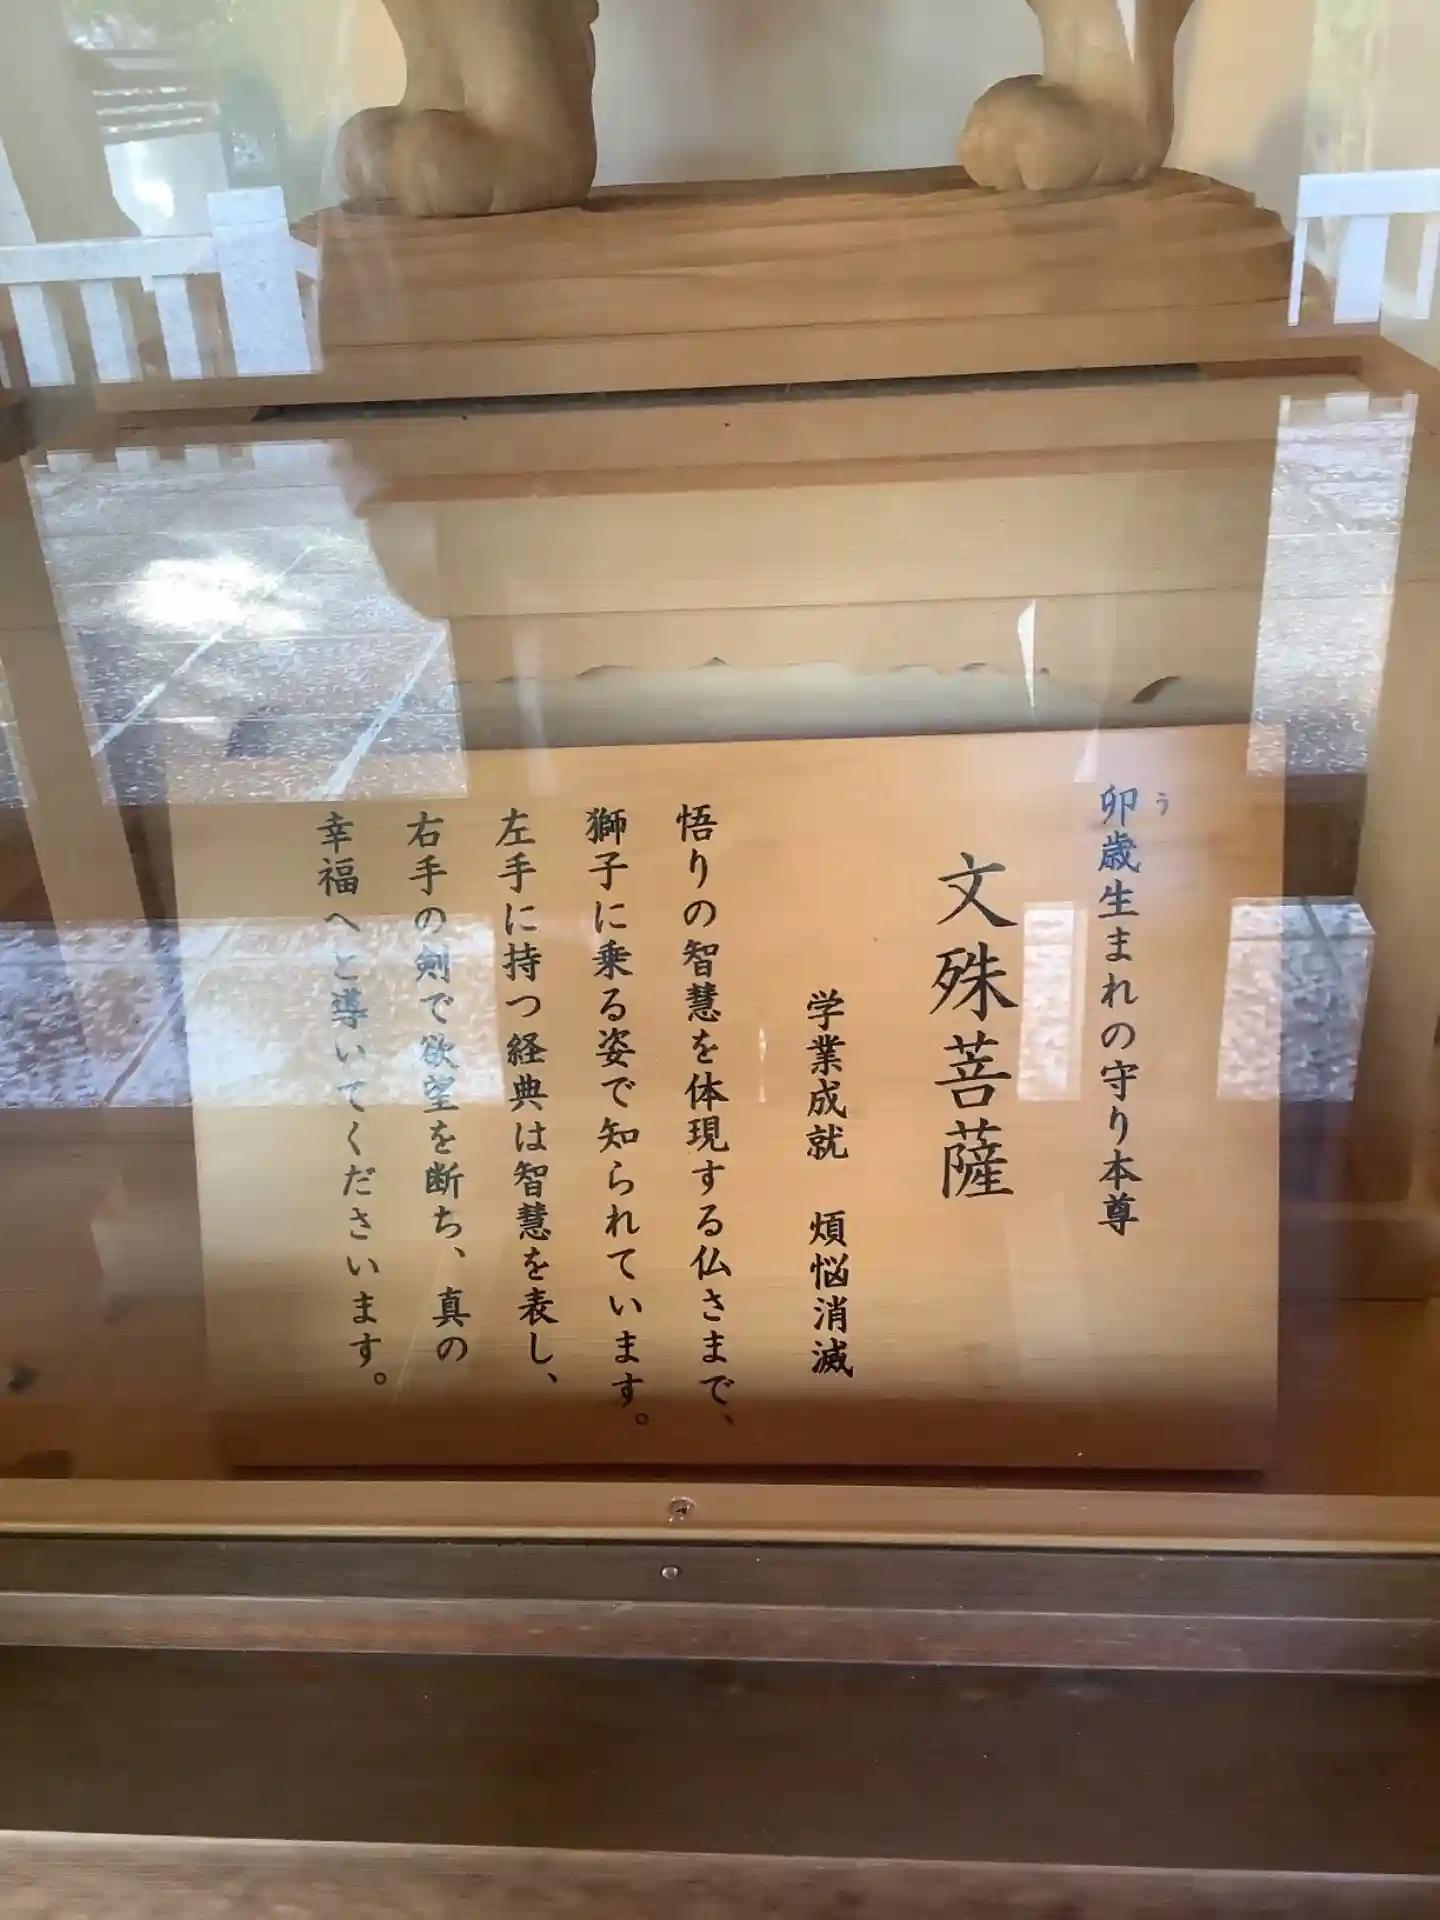 卯歳生まれの守り本尊
う
文殊菩薩
学業成就　煩悩消滅
悟りの智慧を体現する仏さまで、
獅子に乗る姿で知られています。
左手に持つ経典は智慧を表し、
右手の剣で欲望を断ち、真の
幸福へと導いてくださいます。